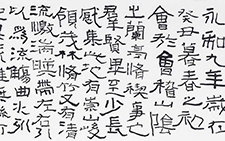 永和九年歲在
癸丑暮春之初
會於會稽山陰
之蘭亭脩稧事也
羣賢畢至少長
咸集此地有崇山峻
領茂林脩竹又有清
流激湍暎帶左右引
以為流觴曲水列